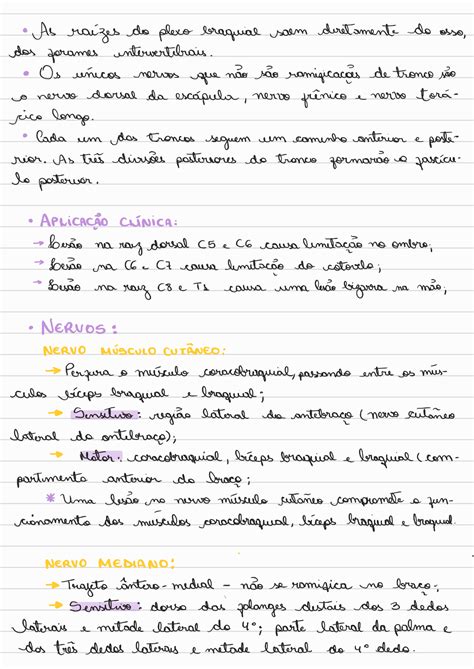 • As raízes do plexo braquial saem diretamente do osso,
dos forames intervertebrais.
• Os únicos nervos que não são ramificações de tronco são
o nervo dorsal da escápula, nervo frênico e nervo torá-
cico longo.
• Cada um dos troncos seguem um caminho anterior e poste-
rior. As três divisões posteriores do tronco formarão o fascícu-
lo posterior.
• APLICAÇÃO CLÍNICA:
→ Lesão na raiz dorsal C5 e C6 causa limitação no ombro;
→ Lesão na C6 e C7 causa limitação do cotovelo;
→ Lesão na raiz C8 e T1 causa uma lesão bizarra na mão;
• NERVOS:
NERVO MÚSCULO CUTÂNEO:
→ Perfura o músculo coracobraquial, passando entre os mús-
culos bíceps braquial e braquial;
→ Sensitivo: região lateral do antebraço (nervo cutâneo
lateral do antebraço);
→ Motor: coracobraquial, bíceps braquial e braquial (com-
partimento anterior do braço;
* Uma lesão no nervo músculo cutâneo compromete o fun-
cionamento dos músculos coracobraquial, bíceps braquial e braquial.
NERVO MEDIANO:
→ Trajeto ântero-medial - não se ramifica no braço;
→ Sensitivo: dorso das falanges distais dos 3 dedos
laterais e metade lateral do 4°; parte lateral da palma e
dos três dedos laterais e metade lateral do 4° dedo.